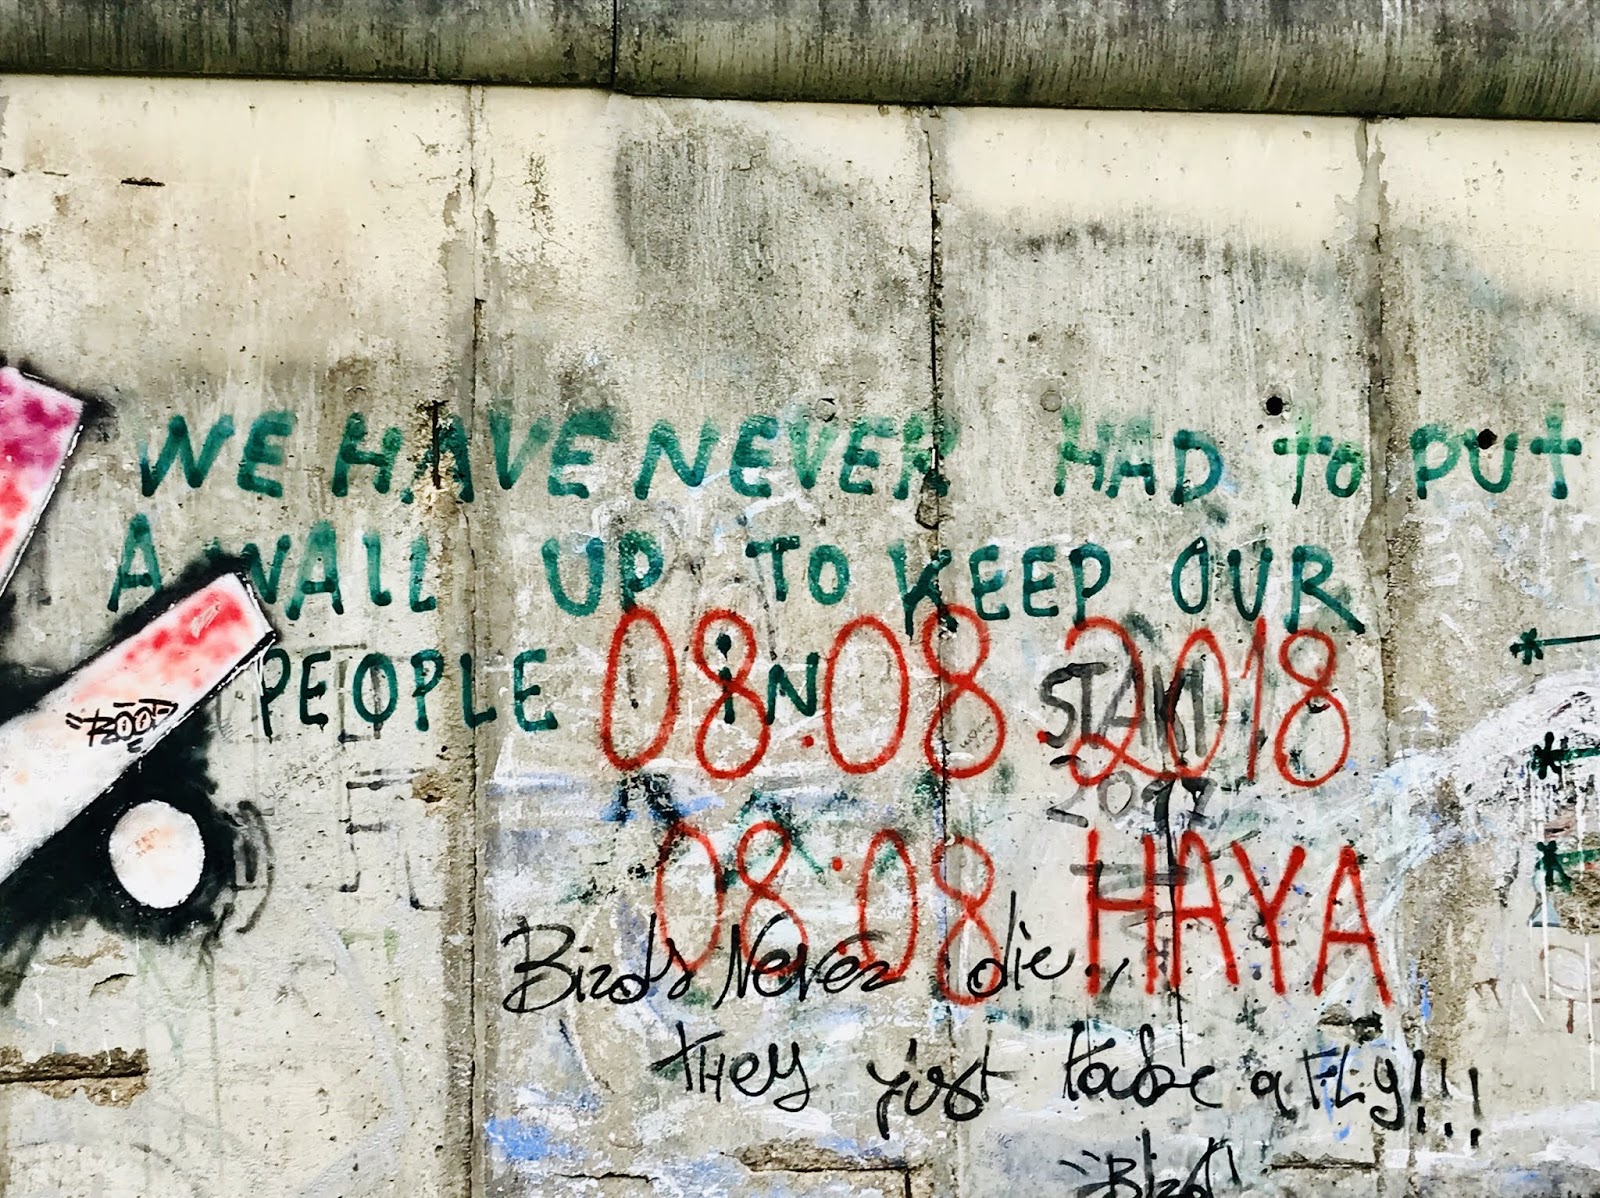 WE HAVE NEVER HAD to PUt
A WAll UP TO KEEP OUR
PEOPLE iN
08.08.2018
08:08 HAYA
Birds Never die,
They just take a Fly!!!